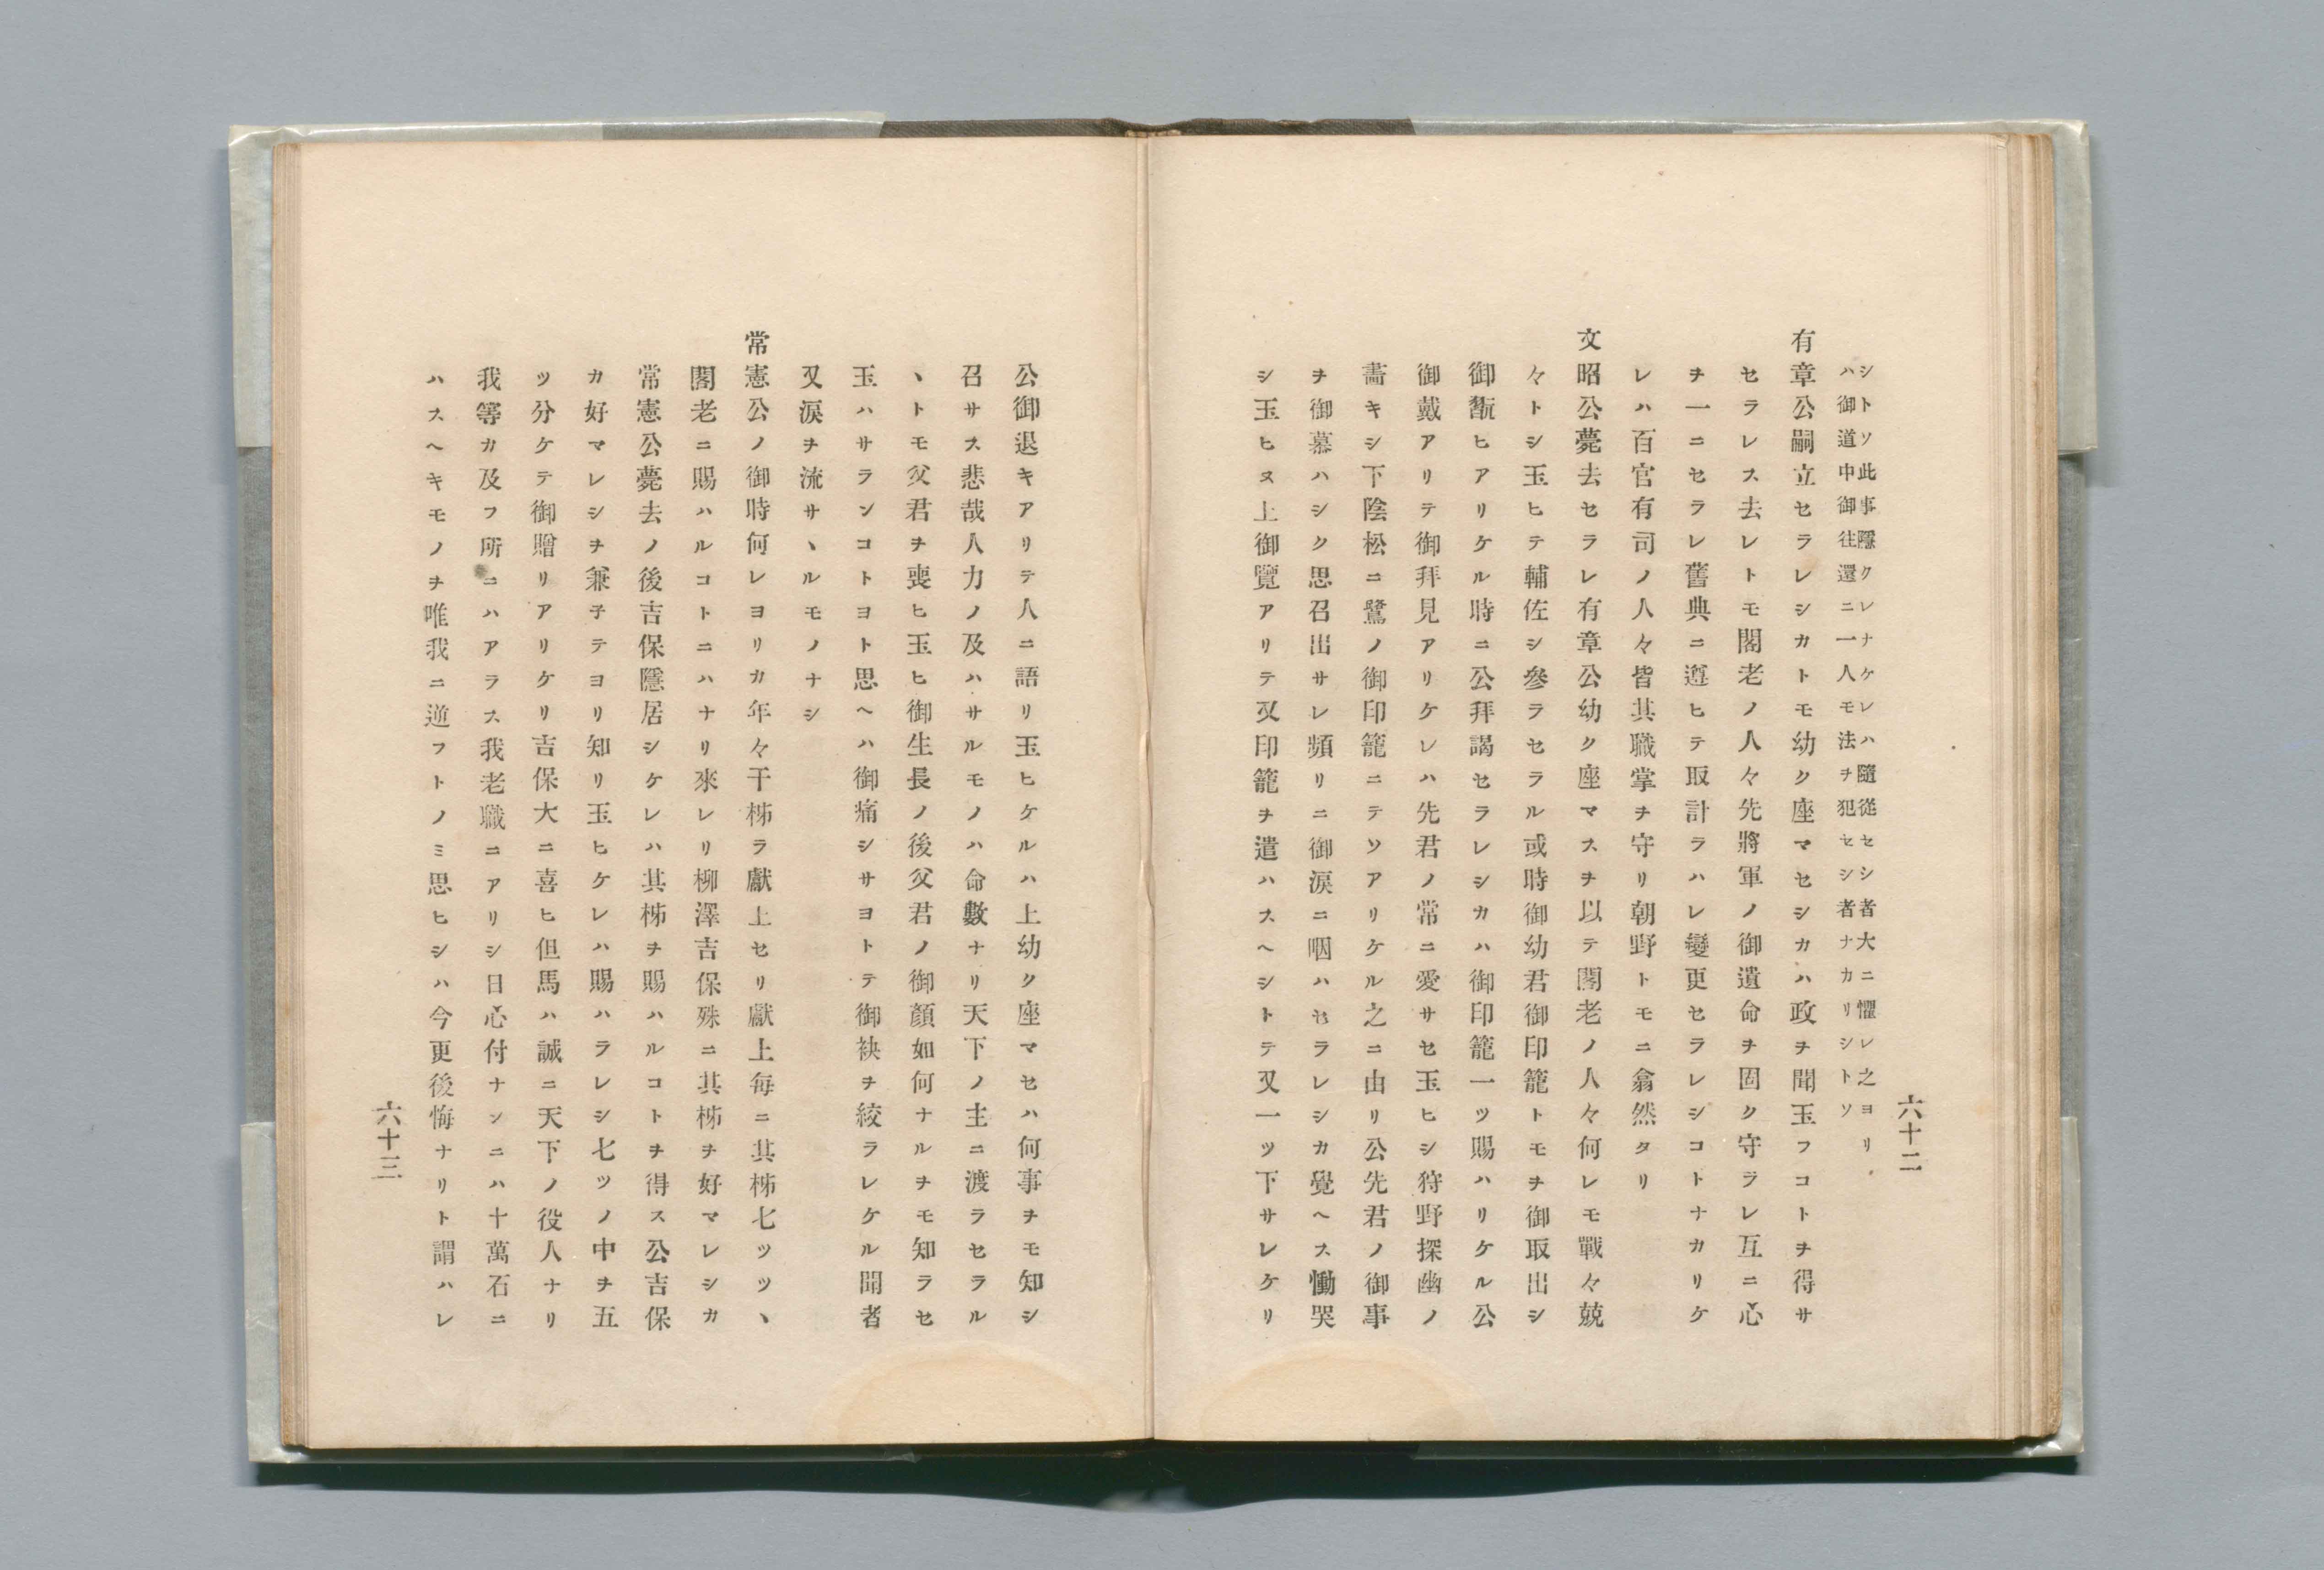 六十二
シトソ此事隱クレナケレハ隨從セシ者大ニ懼レ之ヨリ
ハ御道中御往還ニ一人モ法ヲ犯セシ者ナカリシトソ
有章公嗣立セラレシカトモ幼ク座マセシカハ政ヲ聞玉フコトヲ得サ
セラレス去レトモ閣老ノ人々先將軍ノ御遺命ヲ固ク守ラレ互ニ心
ヲ一ニセラレ舊典ニ遵ヒテ取計ラハレ變更セラレシコトナカリケ
レハ百官有司ノ人々皆其職掌ヲ守リ朝野トモニ翕然タリ
文昭公薨去セラレ有章公幼ク座マスヲ以テ閣老ノ人々何レモ戰々兢
々トシ玉ヒテ輔佐シ參ラセラル或時御幼君御印籠トモヲ御取出シ
御翫ヒアリケル時ニ公拜謁セラレシカハ御印籠一ツ賜ハリケル公
御戴アリテ御拜見アリケレハ先君ノ常ニ愛サセ玉ヒシ狩野探幽ノ
畵キシ下陰松ニ鷺ノ御印籠ニテソアリケル之ニ由リ公先君ノ御事
ヲ御慕ハシク思召出サレ頻リニ御淚ニ咽ハセラレシカ覺ヘス慟哭
シ玉ヒヌ上御覽アリテ又印籠ヲ遣ハスヘシトテ又一ツ下サレケリ
公御退キアリテ人ニ語リ玉ヒケルハ上幼ク座マセハ何事ヲモ知シ
召サス悲哉人力ノ及ハサルモノハ命數ナリ天下ノ主ニ渡ラセラル
ヽトモ父君ヲ喪ヒ玉ヒ御生長ノ後父君ノ御顏如何ナルヲモ知ラセ
玉ハサランコトヨト思ヘハ御痛シサヨトテ御袂ヲ絞ラレケル聞者
又淚ヲ流サヽルモノナシ
常憲公ノ御時何レヨリカ年々干柹ラ獻上セリ獻上毎ニ其柹七ツツヽ
閣老ニ賜ハルコトニハナリ來レリ柳澤吉保殊ニ其柹ヲ好マレシカ
常憲公薨去ノ後吉保隱居シケレハ其柹ヲ賜ハルコトヲ得ス公吉保
カ好マレシヲ兼子テヨリ知リ玉ヒケレハ賜ハラレシ七ツノ中ヲ五
ツ分ケテ御贈リアリケリ吉保大ニ喜ヒ但馬ハ誠ニ天下ノ役人ナリ
我等カ及フ所ニハアラス我老職ニアリシ日心付ナンニハ十萬石ニ
ハスヘキモノヲ唯我ニ逆フトノミ思ヒシハ今更後悔ナリト謂ハレ
六十三